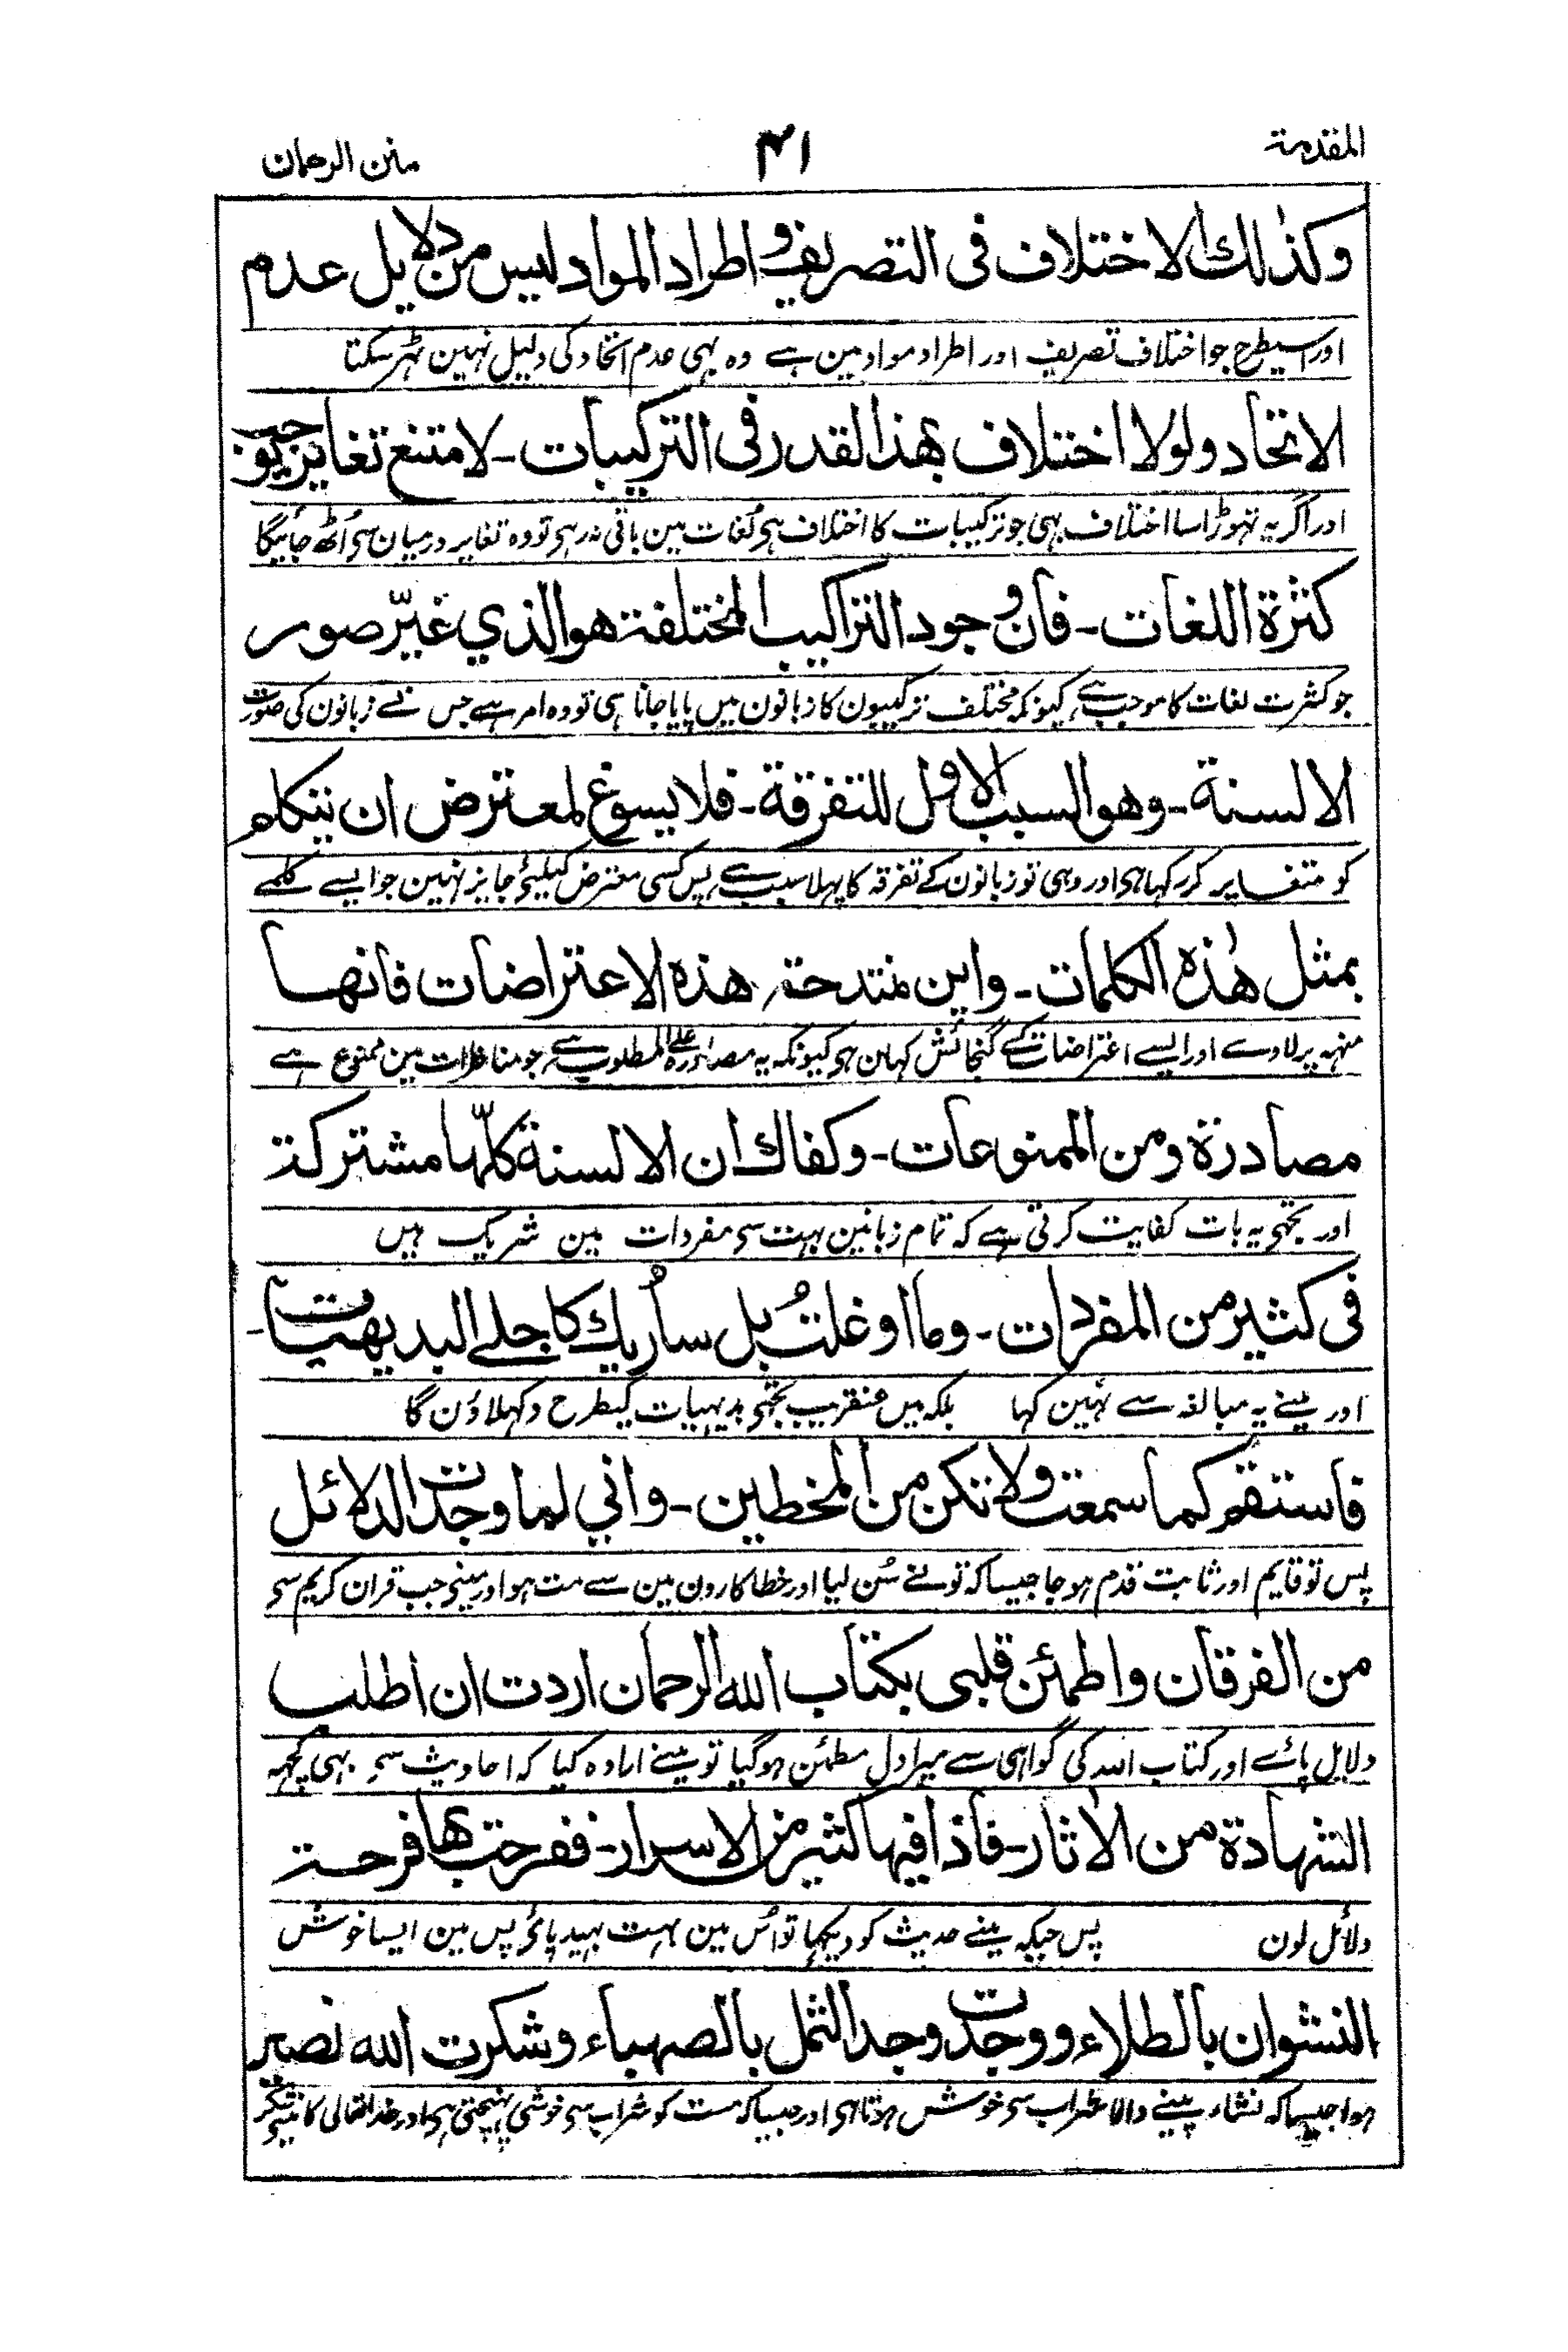 المقدمة ۴۱ منن الرحمان
وكذلك الاختلاف فى التصريف و اطراد المواد ليس من دلايل عدم
اور اسیطرح جو اختلاف تصریف اور اطراد مواد مین ہے وہ بہی عدم اتحاد کی دلیل نہین ٹہر سکتا
الاتحاد ولولا اختلاف بهذا القدر فى التركيبات ـ لامتنع تغاير يوجب
اور اگر یہ تہوڑا سا اختلاف بہی جو ترکیبات کا اختلاف ہی لغات مین باقی نہ رہی تو وہ تغایر درمیان سی اُٹھ جائیگا
كثرة اللغات ـ فان وجود التراكيب المختلفة هو الذي غيّر صور
جو کثرت لغات کا موجب ہے کیونکہ مختلف ترکیبون کا زبانون میں پایا جانا ہی تو وہ امر ہے جس نے زبانون کی صورت
الالسنة ـ وهو السبب الاول للتفرقة ـ فلا يسوغ لمعترض ان يتكلم
کو متغایر کر رکہا ہی اور وہی تو زبانون کے تفرقہ کا پہلا سبب ہے پس کسی معترض کیلئے جایز نہین جو ایسے کلمے
بمثل هٰذه الكلمات ـ واين منتدحة هذه الاعتراضات فانها
منہہ پر لاوے اور ایسے اعتراضات کے گنجائش کہان ہی کیونکہ یہ مصادرہ علی المطلوب ہے جو مناظرات مین ممنوع ہے
مصادرة ومن الممنوعات ـ وكفاك ان الالسنة كلّها مشتركة
اور تجہی یہ بات کفایت کرتی ہے کہ تمام زبانین بہت سی مفردات مین شریک ہیں
فى كثير من المفردات ـ وما اوغلتُ بل سأُريك كاجلے البديهيات ـ
اور مینے یہ مبالغہ سے نہین کہا بلکہ میں عنقریب تجہی بدیہیات کیطرح دکہلاؤن گا
فاستقم كما سمعت ولا تكن من المخطين ـ واني لما وجدت الدلائل
پس تو قایم اور ثابت قدم ہو جا جیسا کہ تونے سُن لیا اور خطا کارون مین سے مت ہو اور مینی جب قران کریم سی
من الفرقان واطمئن قلبى بكتاب الله الرحمان اردت ان اطلب
دلایل پائے اور کتاب اللہ کی گواہی سے میرا دل مطمئن ہو گیا تو مینے ارادہ کیا کہ احادیث سی بہی کچہہ
الشهادة من الأثار ـ فاذا فيها كثير من الاسرار ـ ففرحت بها فرحة
دلائل لون پس جبکہ مینے حدیث کو دیکہا تو اُس مین بہت بہید پائی پس مین ایسا خوش
النشوان بالطلاء ووجدت وجد الثمل بالصهباء وشكرت الله نصير
ہوا جیسا کہ نشاء پینے والا شراب سی خوش ہوتا ہی اور جیسا کہ مست کو شراب سی خوشی پہنچتی ہی اور خدا تعالی کا مینی شکر